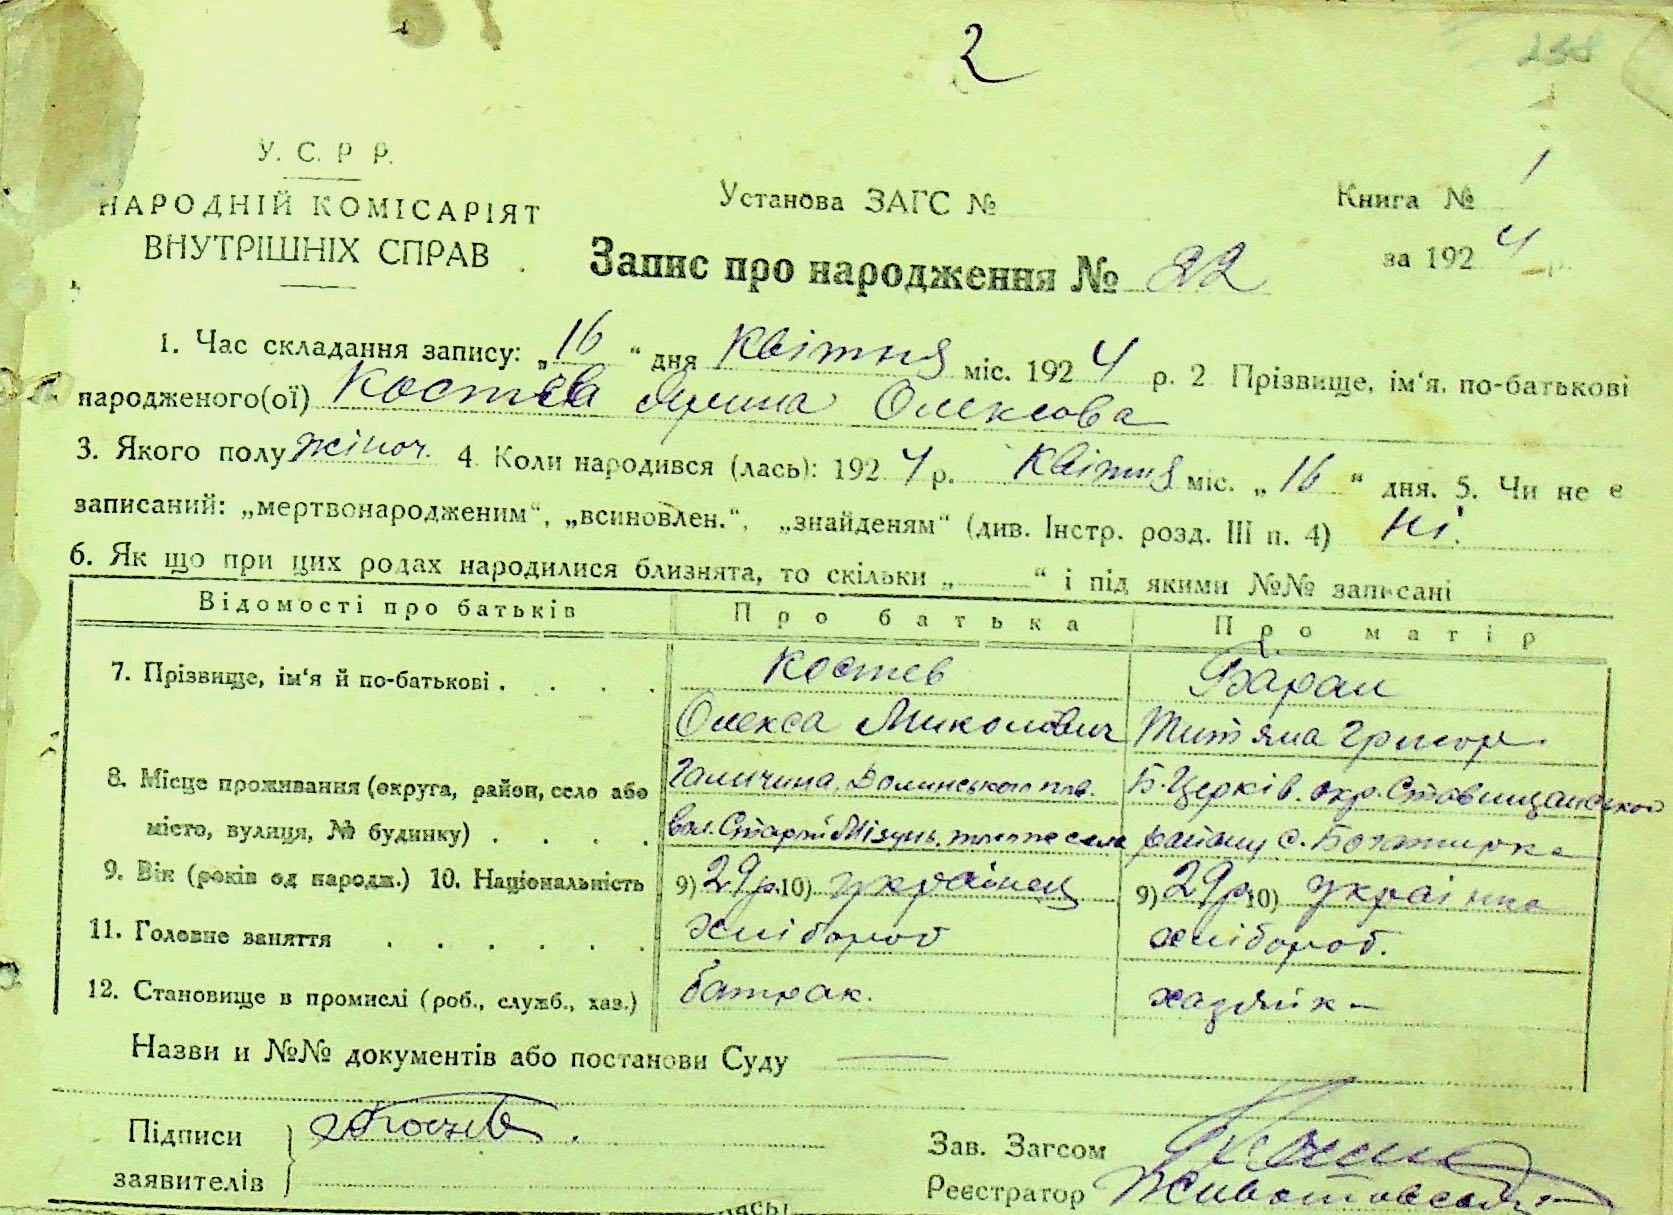 2
У. С. Р Р.
НАРОДНІЙ КОМІСАРІЯТ
ВНУТРІШНІХ СПРАВ
Установа ЗАГС №
Книга № 1
за 1924 р.
Запис про народження № 22
1. Час складання запису: „16“ дня Квітня міс. 1924 р. 2 Прізвище, ім‘я, по-батькові
народженого(ої) Костєва Ярина Олексова
3. Якого полу жіноч. 4 Коли народився (лась): 1924 р. Квітня міс. „16“ дня. 5. Чи не є
записаний: „мертвонародженим“, „всиновлен.“, „знайденям“ (див. Інстр. розд. III п. 4) Ні.
6. Як що при цих родах народилися близнята, то скільки „ “ і під якими №№ записані
Відомості про батьків Про батька Про матір
7. Прізвище, ім‘я й по-батькові . . . . Костев Баран
Олекса Миколович Титяна Григор.
8. Місце проживання (округа, район, село або Галичина, Долинського пов. Б-Церків. окр. Ставищанськой
місто, вулиця, № будинку) . . . . вол. Старий Мізунь, села району с. Богатирка
9. Вік (років од народж.) 10. Національність 9) 29 р. 10) українец 9) 29 р. 10) українка
11. Головне заняття . . . . . . хлібороб хлібороб.
12. Становище в промислі (роб., служб., хаз.) батрак. хазяйка
Назви и №№ документів або постанови Суду —
Підписи
заявителів
Зав. Загсом
Реєстратор